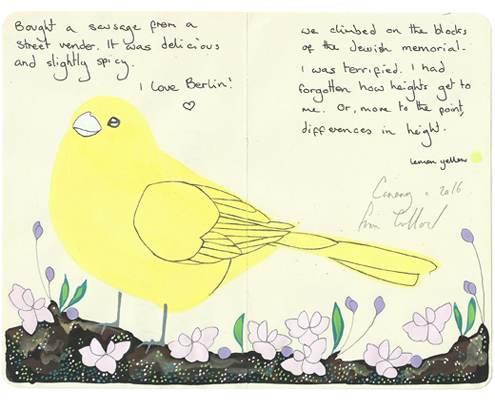 Bought a sausage from a
street vender. It was delicious
and slightly spicy.
I Love Berlin!
we climbed on the blocks
of the Jewish memorial.
I was terrified. I had
forgotten how heights get to
me. Or, more to the point,
differences in height.
lemon yellow
Canary . 2016